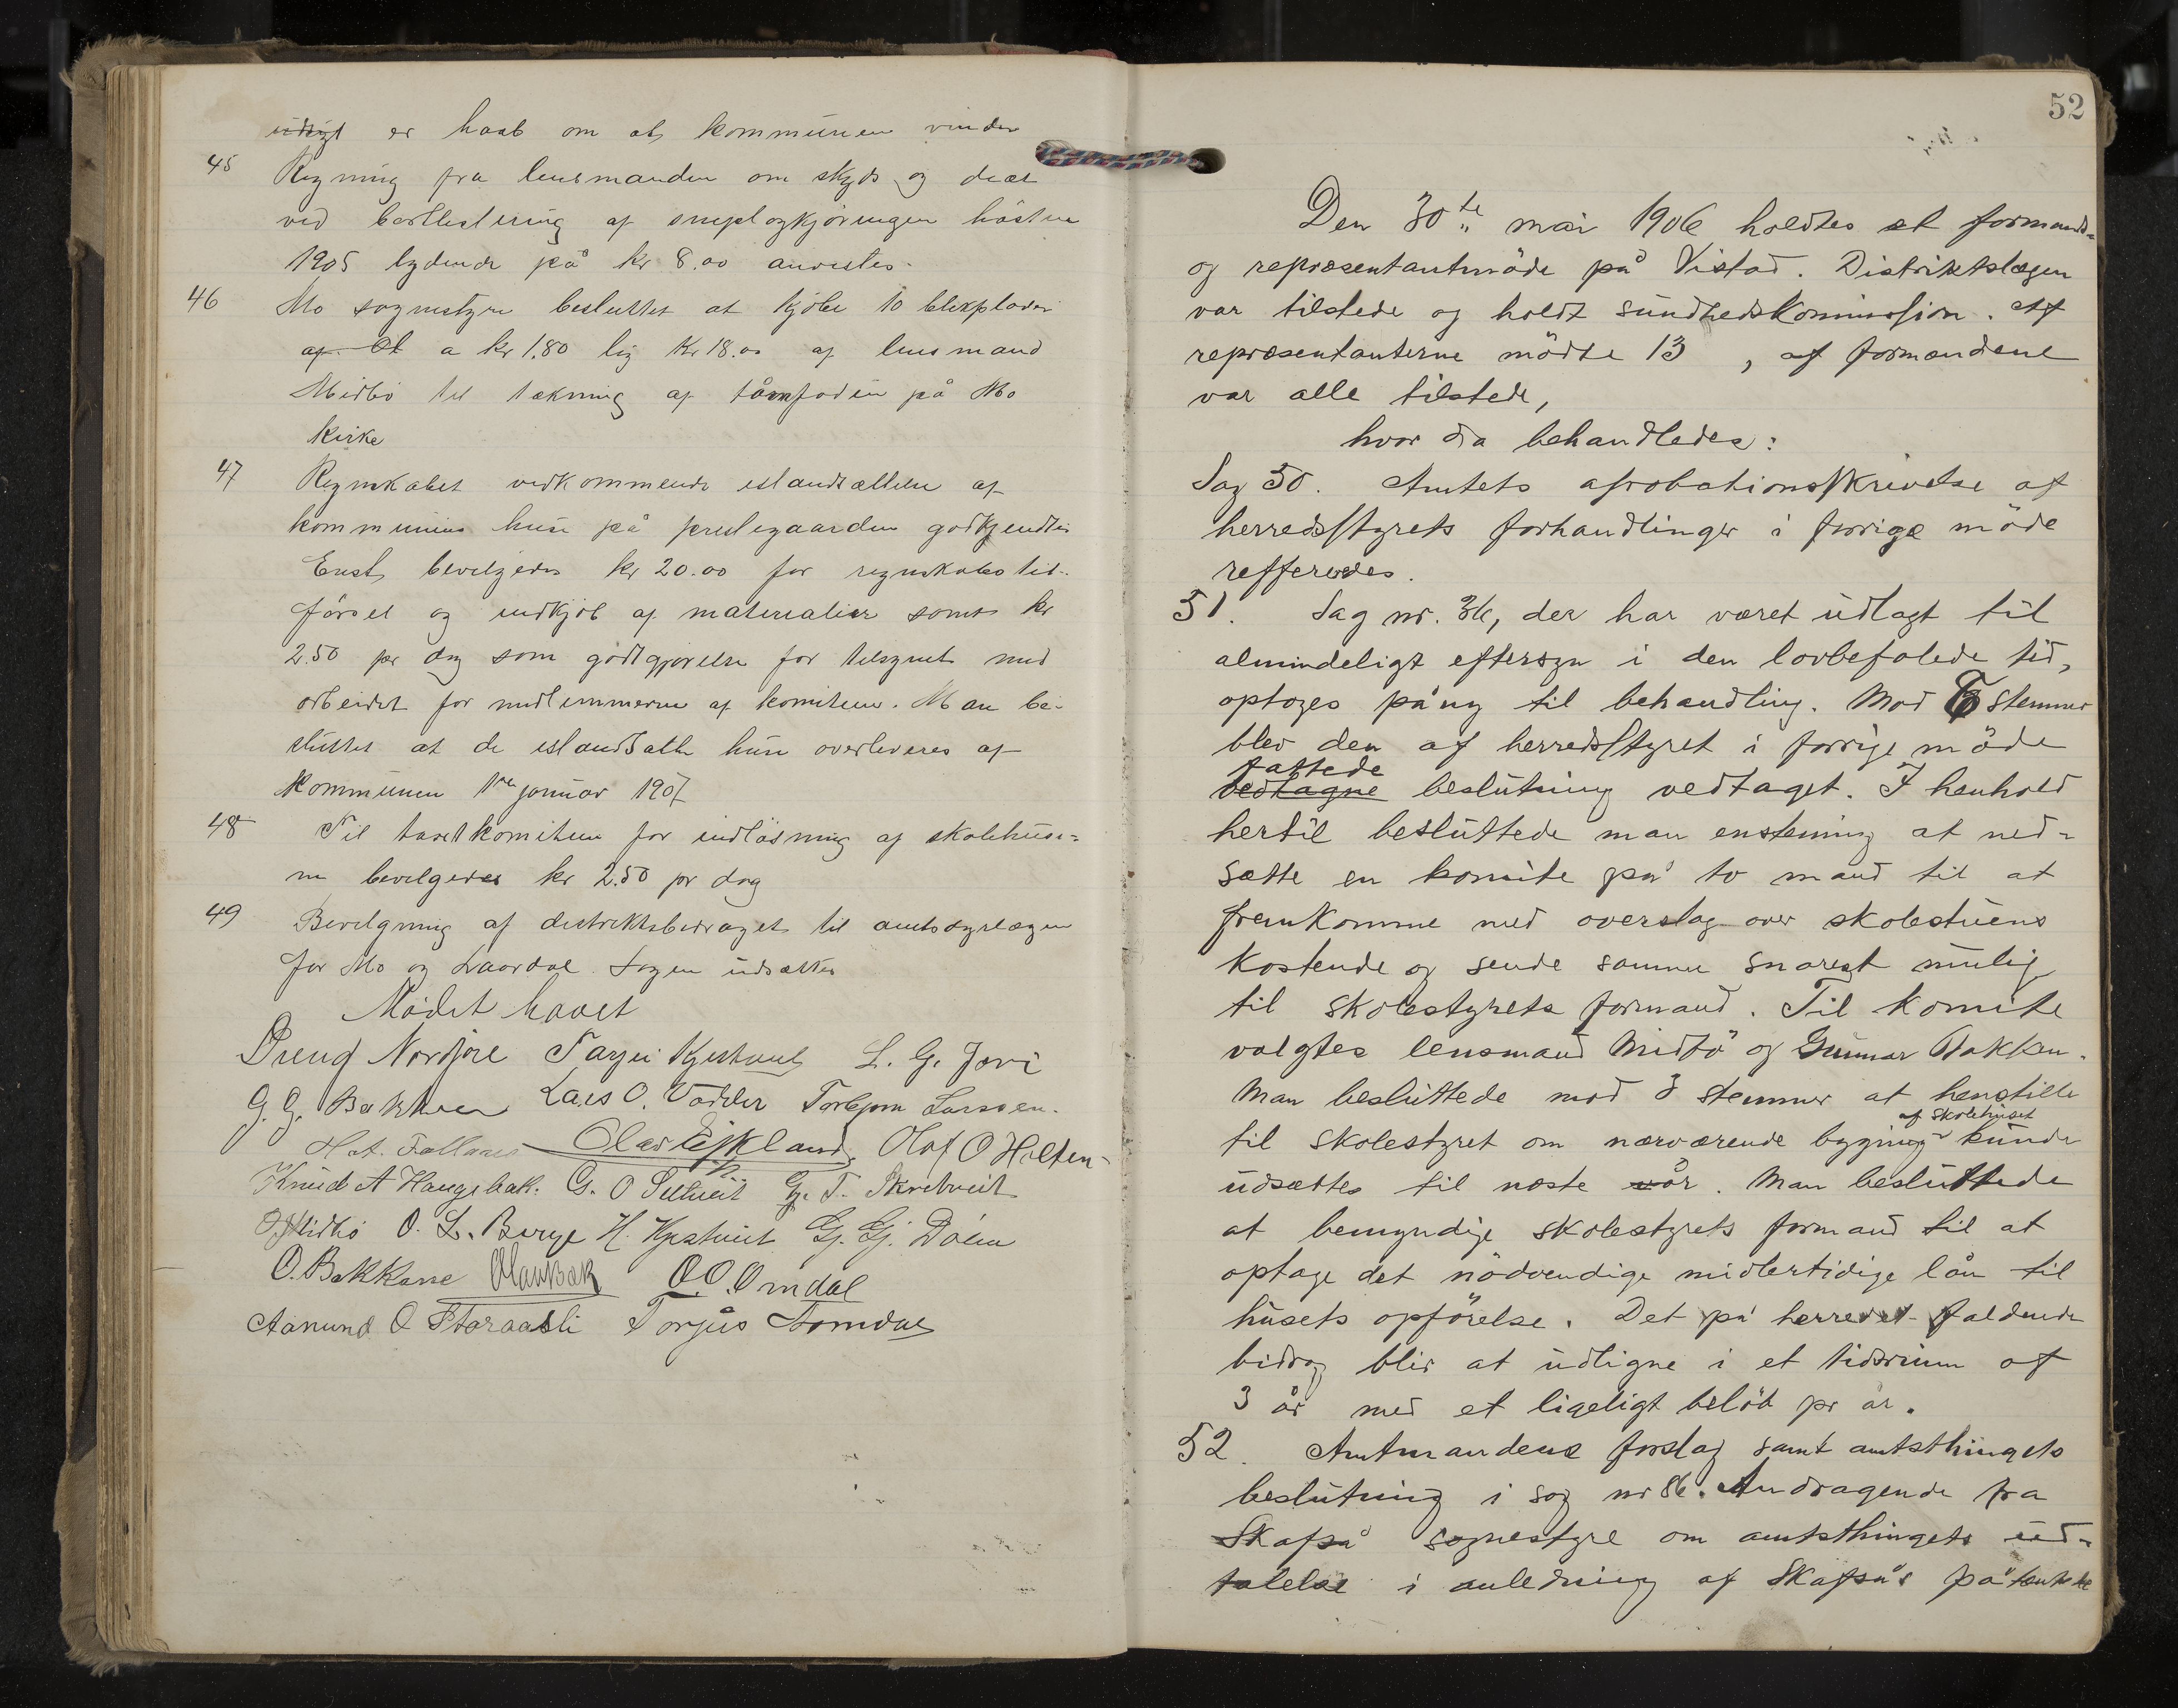 er haab om at kommunen vinder
45 Regning fra lensmanden om skyds og diæt
ved bortlisitering af sneplogkjøringen høsten
1905 lydende på kr 8.00 anvistes.
46 Mo sognestyre besluttet at kjöbe 10 blikplader
a kr 1.80 lig Kr 18.00 af lensmand
Midbö til tækning af tårnfoden på Mo
kirke
47 Regnskabet vedkommende istandsættelse af
kommunens huse på prestegaarden godkjendtes
Enst. bevilgedes kr 20.00 for regnskabs til-
försel og indkjöb af materialier samt kr
2.50 pr dag som godtgjørelse for tilsynet med
arbeidet for medlemmerne af komiteen. Man be-
sluttet at de istandsatte huse overleveres af
Kommunen 1ste januar 1907
48 Til taxtkomiteen for indlösning af skolehuse-
ne bevilgedes kr 2.50 pr dag
49 Bevilgning af distriktsbidraget til amtsdyrlægen
for Mo og Laardal. Sagen udsættes
Mödet hævet
Dreng Nordjore Tarjei Kjostveit L. G. Jori
G. G. Bakken Lars O. Vadder Torbjørn Larssen.
Olav Eiskland Olaf O Holten
Knud A Haugebak. G. O G. T. Skretveit
O. L. Berge H. G. Gj. Dalen
O. Bakkane O. O. Omdal
Aanund O Storaasli Torjus Aamdal
52
Den 30te mai 1906 holdtes et formands-
og repræsentantmöde på Vistad. Distriktslægen
var tilstede og holdt sundhedskommission. Af
repræsentanterne mödte 13, af formændene
var alle tilstede,
hvor da behandledes:
Sag 50. Amtets aprobationsskrivelse af
herredsstyrets forhandlinger i forrige möde
reffereredes.
51. Sag nr. 36, der har været udlagt til
almindeligt eftersyn i den lovbefalede tid,
optoges påny til behandling. Mod 6 stemmer
blev den af herredsstyret i forrige möde
fattede
vedtagne beslutning vedtaget. I henhold
hertil besluttede man enstemmig at ned-
sætte en komite på to mand til at
fremkomme med overslag over skolestuens
kostende og sende samme snarest mulig
til skolestyrets formand. Til komite
valgtes lensmand Midbö og Gunnar Bakken.
Man besluttede mod 3 stemmer at henstille
af skolehuset
til skolestyret om nærværende bygning kunde
udsættes til næste vår. Man besluttede
at bemyndige skolestyrets formand til at
optage det nödvendige midlertidige lån til
husets opförelse. Det på herredet faldende
bidrag blir at udligne i et tidsrum af
3 år med et ligeligt belöb pr år.
52. Amtmandens forslag samt amtsthingets
beslutning i sag nr 86. Andragende fra
Skafså sognestyre om amtsthingets ud-
talelse i anledning af Skafså's påtænkte